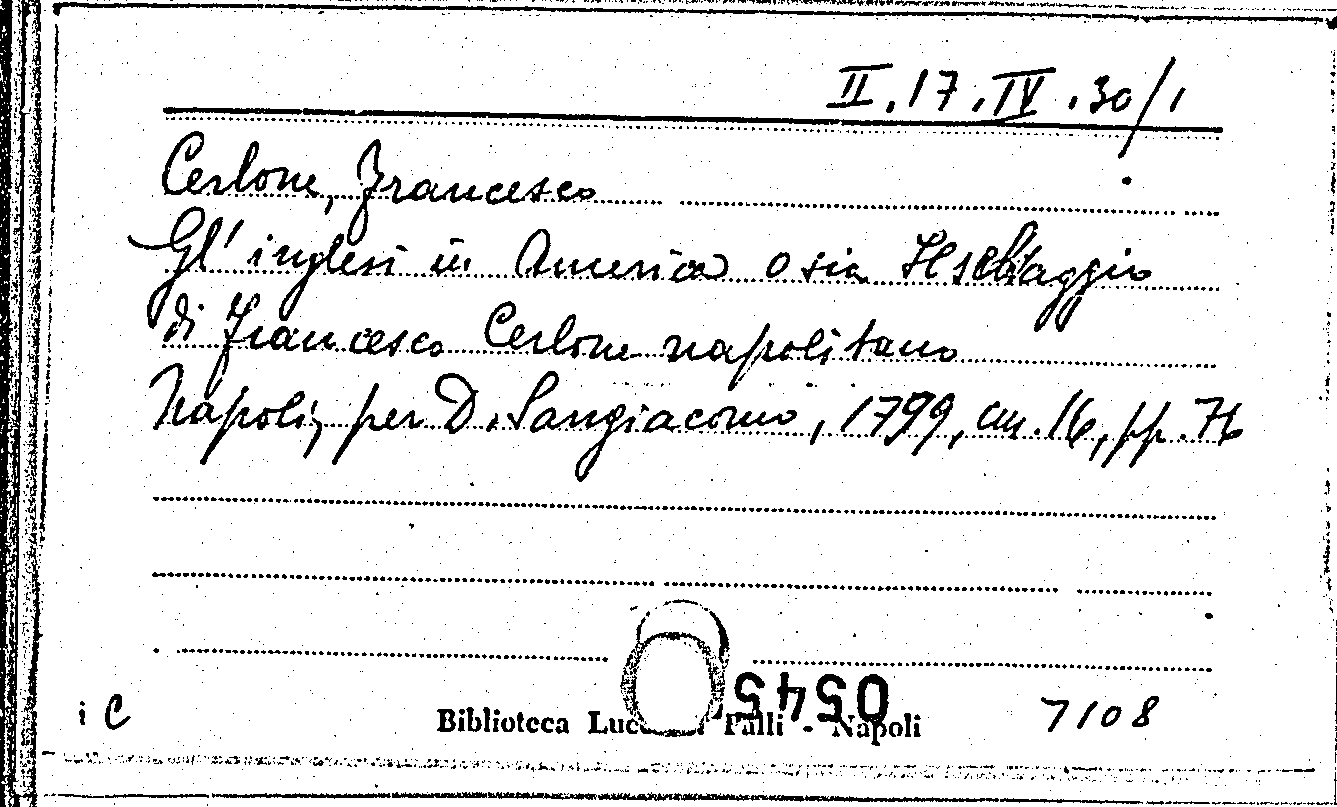 II.17.IV.30/1
Cerlone, Francesco
Gl'inglesi in America o sia Il selvaggio
di Francesco Cerlone napolitano
Napoli, per D. Sangiacomo, 1799, cm. 16, pp. 76
0545
i C Biblioteca Lucchesi Palli - Napoli 7108